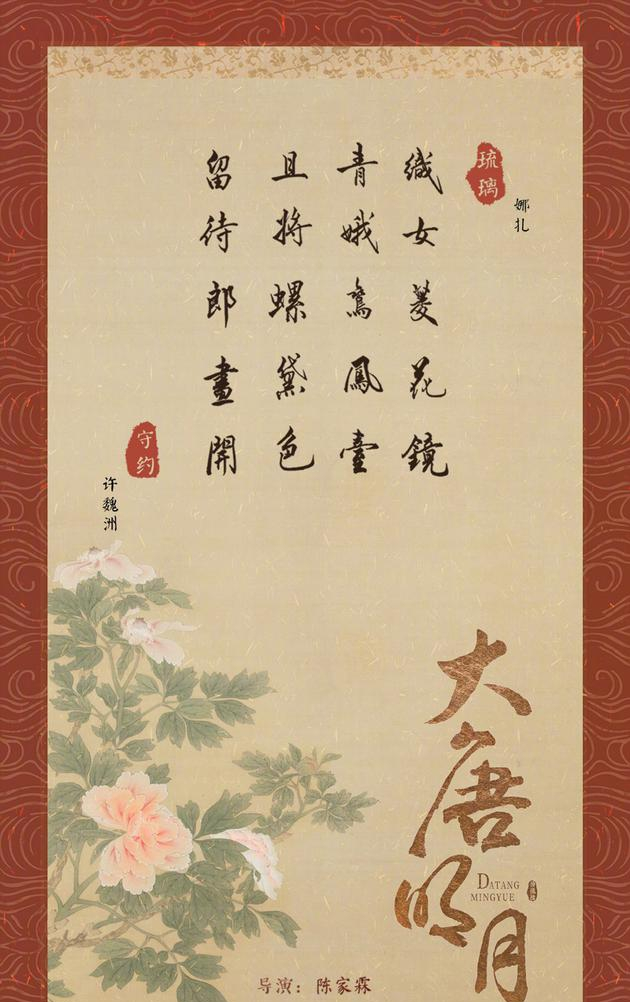 琉璃
娜扎
織女菱花鏡
青娥鸞鳳臺
且將螺黛色
留待郎畫開
守约
许魏洲
大唐明月
DATANG
MINGYUE
导演：陈家霖